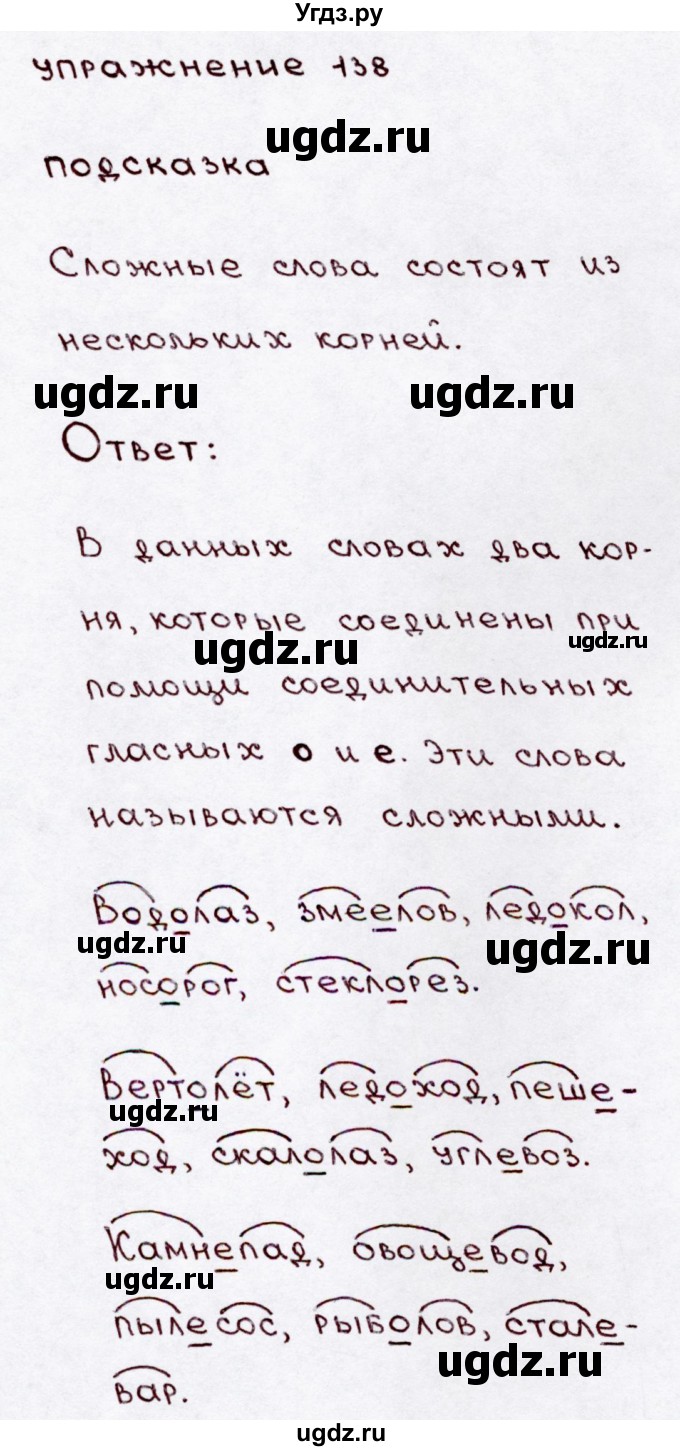 Угдз.ру
упражнение 138
ugdz.ru
подсказка
Сложные слова состоят из
нескольких корней.
ugdz.ru ugdz.ru
Ответ:
В данных словах два кор-
ня, которые соединены при
ugdz.ru ugdz.ru
помощи соединительных
гласных о и е. Эти слова
называются сложными.
Водолаз, змеелов, ледокол,
ugdz.ru ugdz.ru
носорог, стеклорез.
Вертолёт, ледоход, пеше-
ugdz.ru
ход, скалолаз, углевоз.
Камнепад, овощевод,
ugdz.ru
пылесос, рыболов, стале-
ugdz.ru
вар.
ugdz.ru